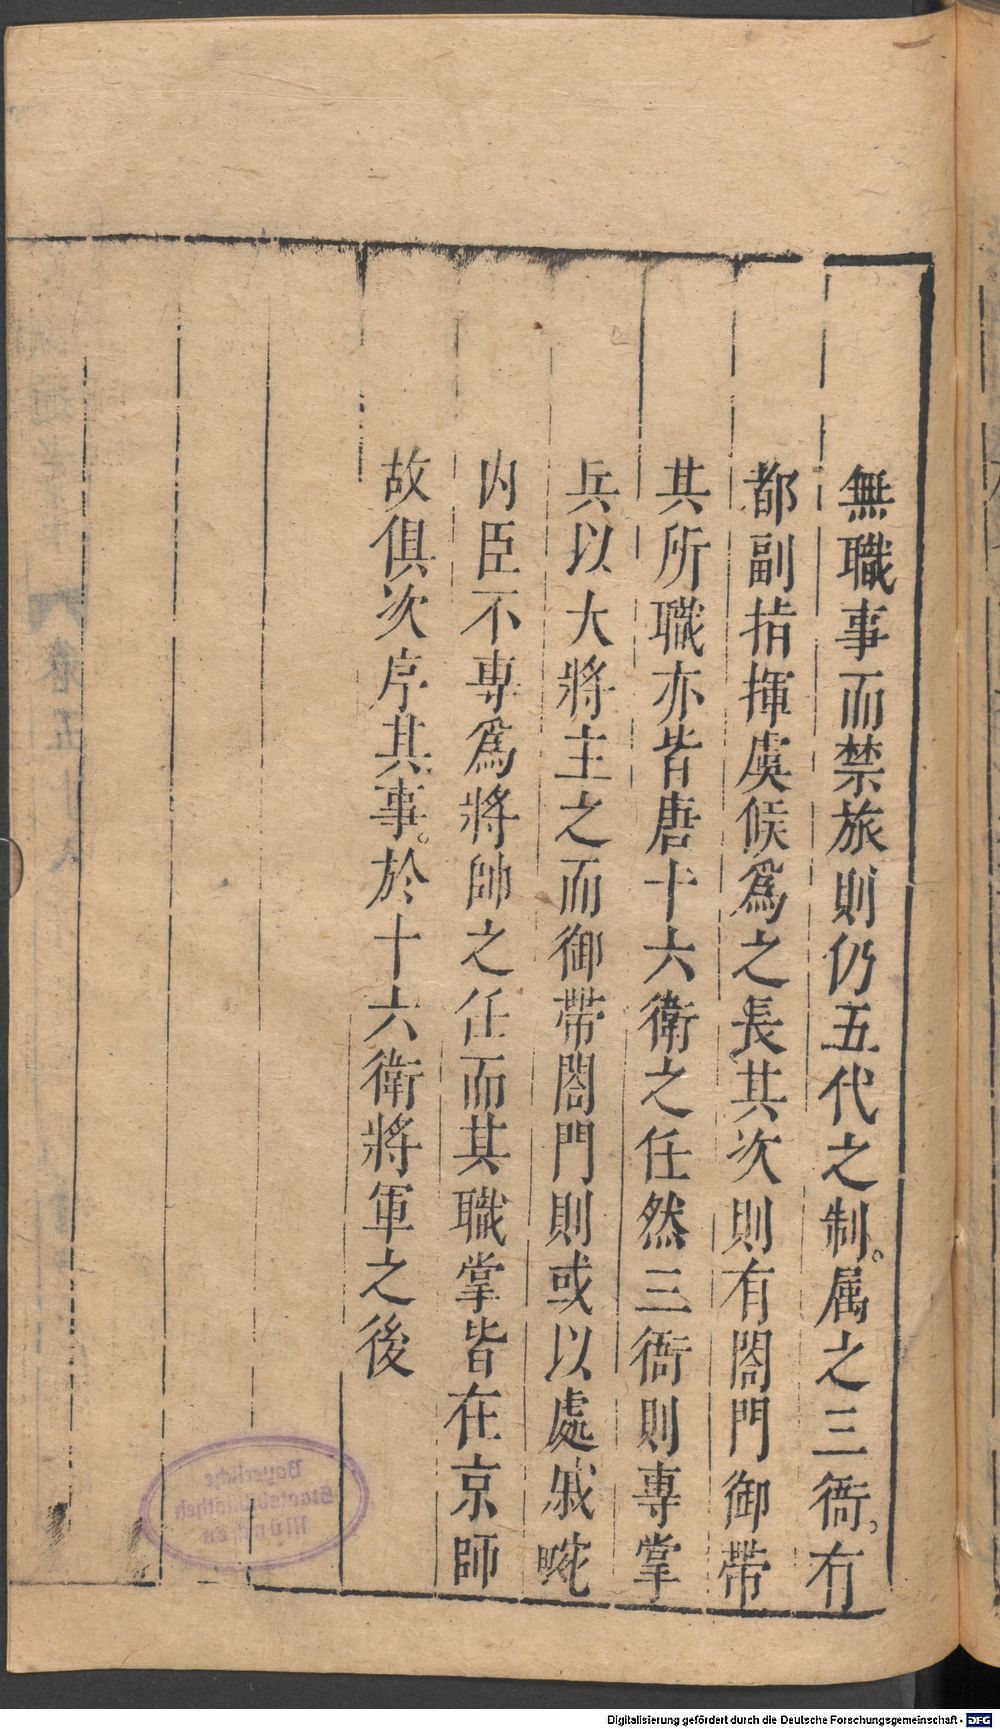 無職事而禁旅則仍五代之制。属之三衙。有
都副指揮虞候爲之長其次則有閤門御帶
其所職亦皆唐十六衛之任然三衙則專掌
兵以大將主之而御帶閤門則或以處戚畹
内臣不專爲將帥之任而其職掌皆在京師
故俱次序其事。於十六衛將軍之後
Bayerische
Staatsbibliothek
München
Digitalisierung gefördert durch die Deutsche Forschungsgemeinschaft - DFG